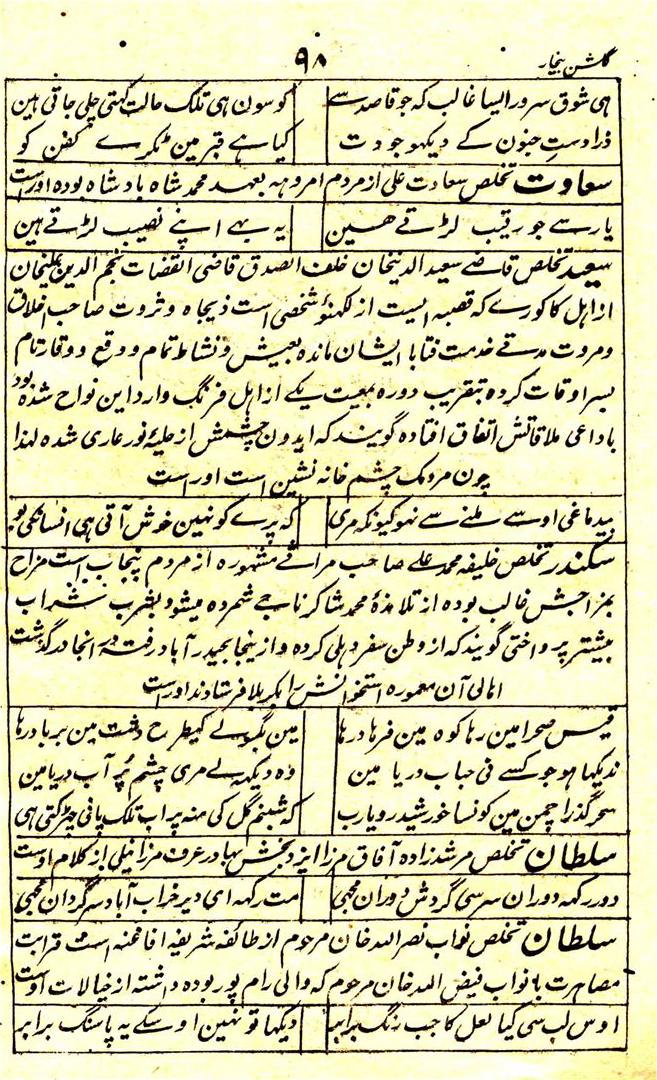 گلشن بیخار
۹۸
ہی شوق سرور ایسا غالب کہ جو قاصد سے کوسون ہی تلک حالت کہتی چلی جاتی ہین
ذرا دستِ جنون کے دیکھو جودت کیا ہے قبر مین ٹکرے کفن کو
سعادت تخلص سعادت علی از مردم امروہہ بعہد محمد شاہ بادشاہ بودہ اوراست
یار سے جو رقیب لڑتے ھین یہ بہے اپنے نصیب لڑتے ہین
سعید تخلص قاضے سعید الدینخان خلف الصدق قاضی القضات نجم الدین علیخان
از اہل کاکورے کہ قصبہ ایست از لکھنؤ شخصی است ذیجاہ و ثروت صاحب اخلاق
ومروت مدتے خدمت قتابا ایشان ماندہ بعیش و نشاط تمام و وقع و وقار تام
بسر اوقات کردہ بتقریب دورہ بمعیت یکے از اہل فرنگ وارد این نواح شدہ بود
با داعی ملاقاتش اتفاق افتادہ گویند کہ ایدون چشمش از حلیۂ نور عاری شدہ لہذا
چون مردمک چشم خانہ نشین است اوراست
بیدماغی اوسے ملنے سے نہو کیونکہ مری کہ پرے کو نہین خوش آتی ہی انسانکی بو
سکندر تخلص خلیفہ محمد علے صاحب مراثے مشہورہ از مردم پنجاب است مزاح
بمزاجش غالب بودہ از تلامذۂ محمد شاکر ناجے شمردہ میشود بشرب شراب
بیشتر پرداختی گویند کہ از وطن سفر دہلی کردہ و ازینجا بحیدرآباد رفتہ در انجا درگذشت
اہالی آن معمورہ استخوانش را بکربلا فرستادند اوراست
قیس صحرا مین رہا کوہ مین فرہاد رہا مین بگولے کیطرح دشت مین برباد رہا
ندیکہا ہو جو کسے نی حباب دریا مین وہ دیکہہ لے مری چشم پُر آب دریا مین
سحر گذرا چمن مین کونسا خورشید رو یارب کہ شبنم گل کی منہ پر اب تلک پانی چھڑکتی ہی
سلطان تخلص مرشدزادہ آفاق مرزا ایزد بخش بہادر عرف مرزا نیلی از کلام اوست
دور رکہہ دوران سر سی گردش دوران مجہی مت رکہہ ای دیر خراب آباد سرگردان مجہی
سلطان تخلص نواب نصراللہ خان مرحوم از طائفہ شریفہ افاغنہ است قرابت
مصاہرت با نواب فیض اللہ خان مرحوم کہ والی رام پور بودہ داشتہ از خیالات اوست
اوس لب سی کیا لعل کا جب رنگ برابر دیکہا تو نہین اوسکے یہ پاسنگ برابر